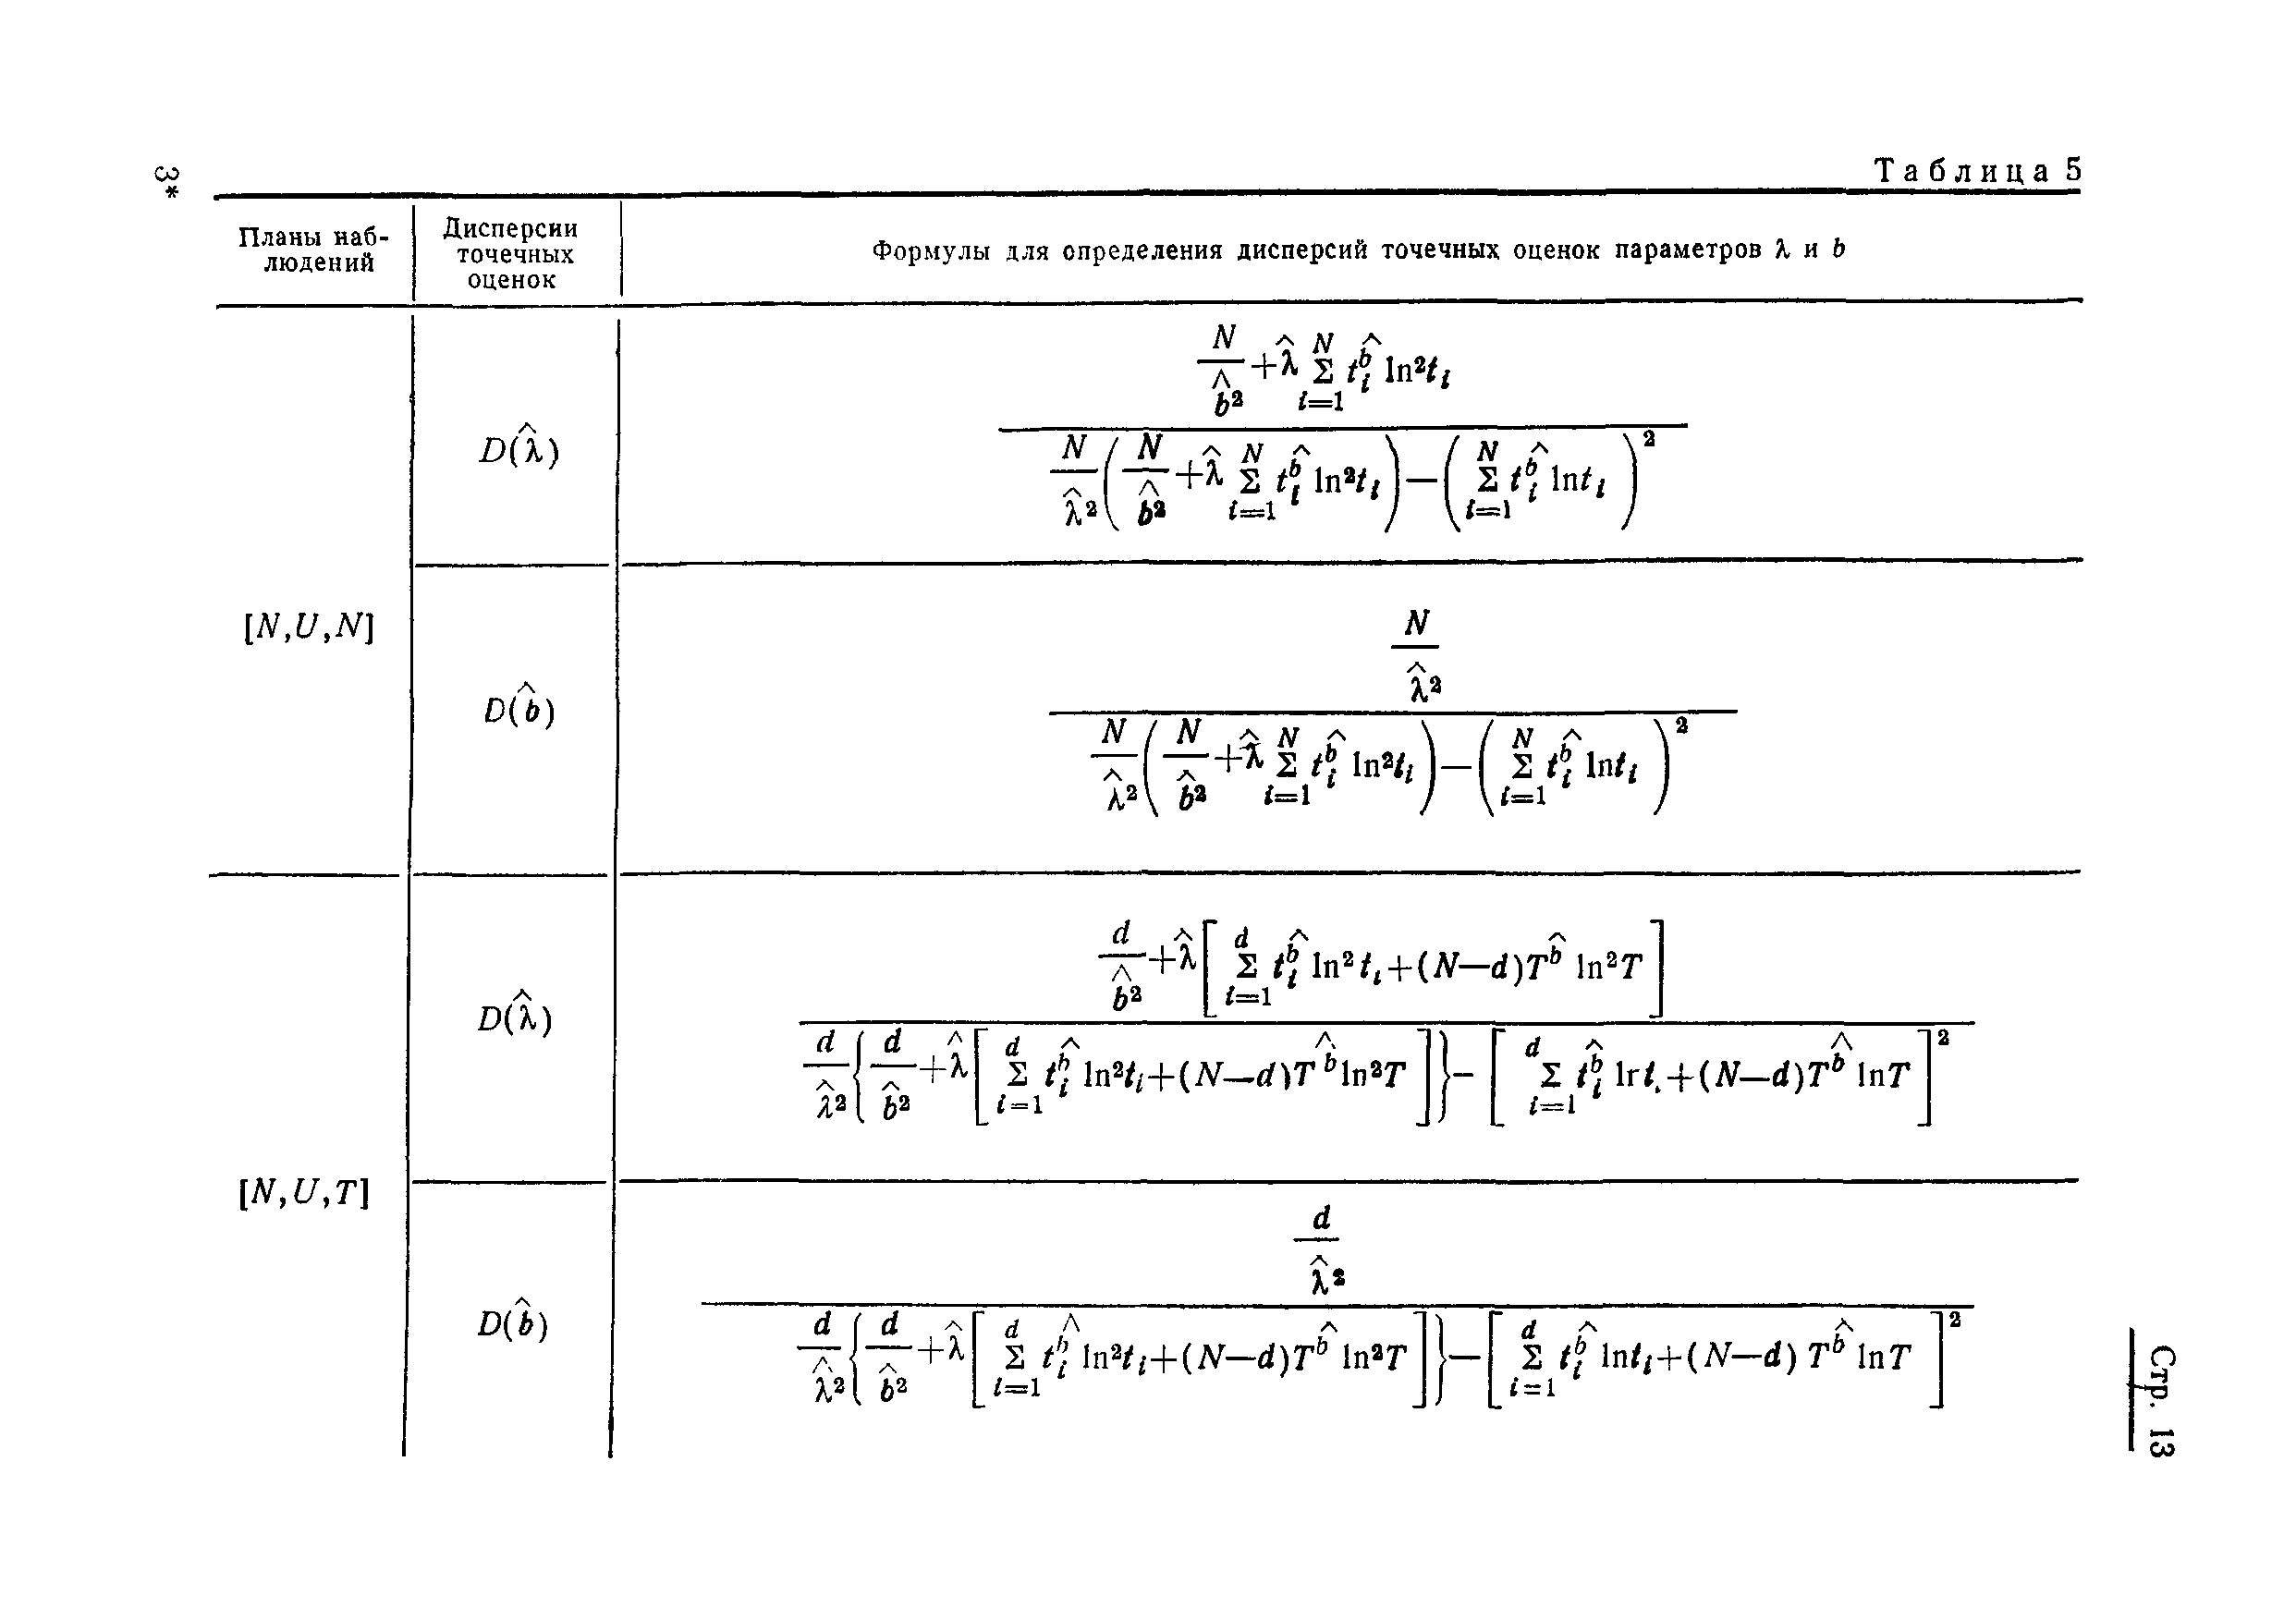 3*
Таблица 5
Планы наб-
людений
Дисперсии
точечных
оценок
Формулы для определения дисперсий точечных оценок параметров λ и b
[N,U,N]
D(λ̂)
\frac{\frac{N}{\hat{b}^2}+\hat{λ}\sum_{i=1}^{N} t_i^{\hat{b}} \ln^2 t_i}{\frac{N}{\hat{λ}^2}\left(\frac{N}{\hat{b}^2}+\hat{λ}\sum_{i=1}^{N} t_i^{\hat{b}} \ln^2 t_i\right)-\left(\sum_{i=1}^{N} t_i^{\hat{b}} \ln t_i\right)^2}
D(b̂)
\frac{\frac{N}{\hat{λ}^2}}{\frac{N}{\hat{λ}^2}\left(\frac{N}{\hat{b}^2}+\hat{λ}\sum_{i=1}^{N} t_i^{\hat{b}} \ln^2 t_i\right)-\left(\sum_{i=1}^{N} t_i^{\hat{b}} \ln t_i\right)^2}
[N,U,T]
D(λ̂)
\frac{\frac{d}{\hat{b}^2}+\hat{λ}\left[\sum_{i=1}^{d} t_i^{\hat{b}} \ln^2 t_i+(N-d)T^{\hat{b}} \ln^2 T\right]}{\frac{d}{\hat{λ}^2}\left\{\frac{d}{\hat{b}^2}+\hat{λ}\left[\sum_{i=1}^{d} t_i^{\hat{b}} \ln^2 t_i+(N-d)T^{\hat{b}} \ln^2 T\right]\right\}-\left[\sum_{i=1}^{d} t_i^{\hat{b}} \ln t_i+(N-d)T^{\hat{b}} \ln T\right]^2}
D(b̂)
\frac{\frac{d}{\hat{λ}^2}}{\frac{d}{\hat{λ}^2}\left\{\frac{d}{\hat{b}^2}+\hat{λ}\left[\sum_{i=1}^{d} t_i^{\hat{b}} \ln^2 t_i+(N-d)T^{\hat{b}} \ln^2 T\right]\right\}-\left[\sum_{i=1}^{d} t_i^{\hat{b}} \ln t_i+(N-d)T^{\hat{b}} \ln T\right]^2}
Стр. 13